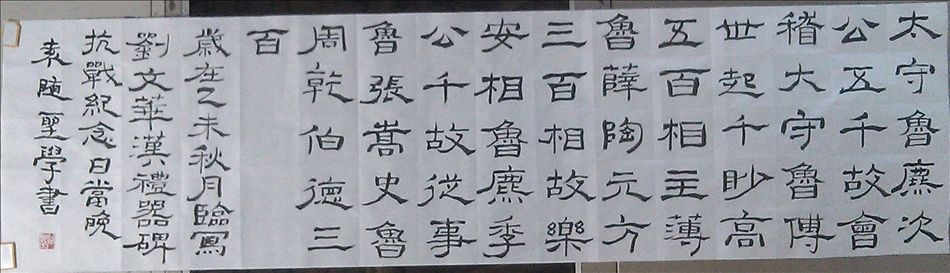 太守魯麃次
公五千故會
稽大守魯傅
世起千眇高
五百相主薄
魯薛陶元方
三百相故樂
安相魯麃季
公千故從事
魯張嵩史魯
周乾伯德三
百
歲在乙未秋月臨寫
劉文華漢禮器碑
抗戰紀念日當晚
袁隨聖學書